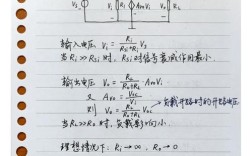 Vs Ri AvoVi Ro
输入电压 Vi = Ri/(Rsi+Ri) Vs
当 Ri >> Rsi 时, Rsi 对信号衰减作用最小
输出电压 Vo = RL/(Ro+RL) · AvoVi
又 Avo = Voc/Vi
负载开路时的开路电压
Vo = RL/(Ro+RL) Voc
当 RL >> Ro 时, 负载影响小
理想情况下: Ri → ∞, Ro → 0